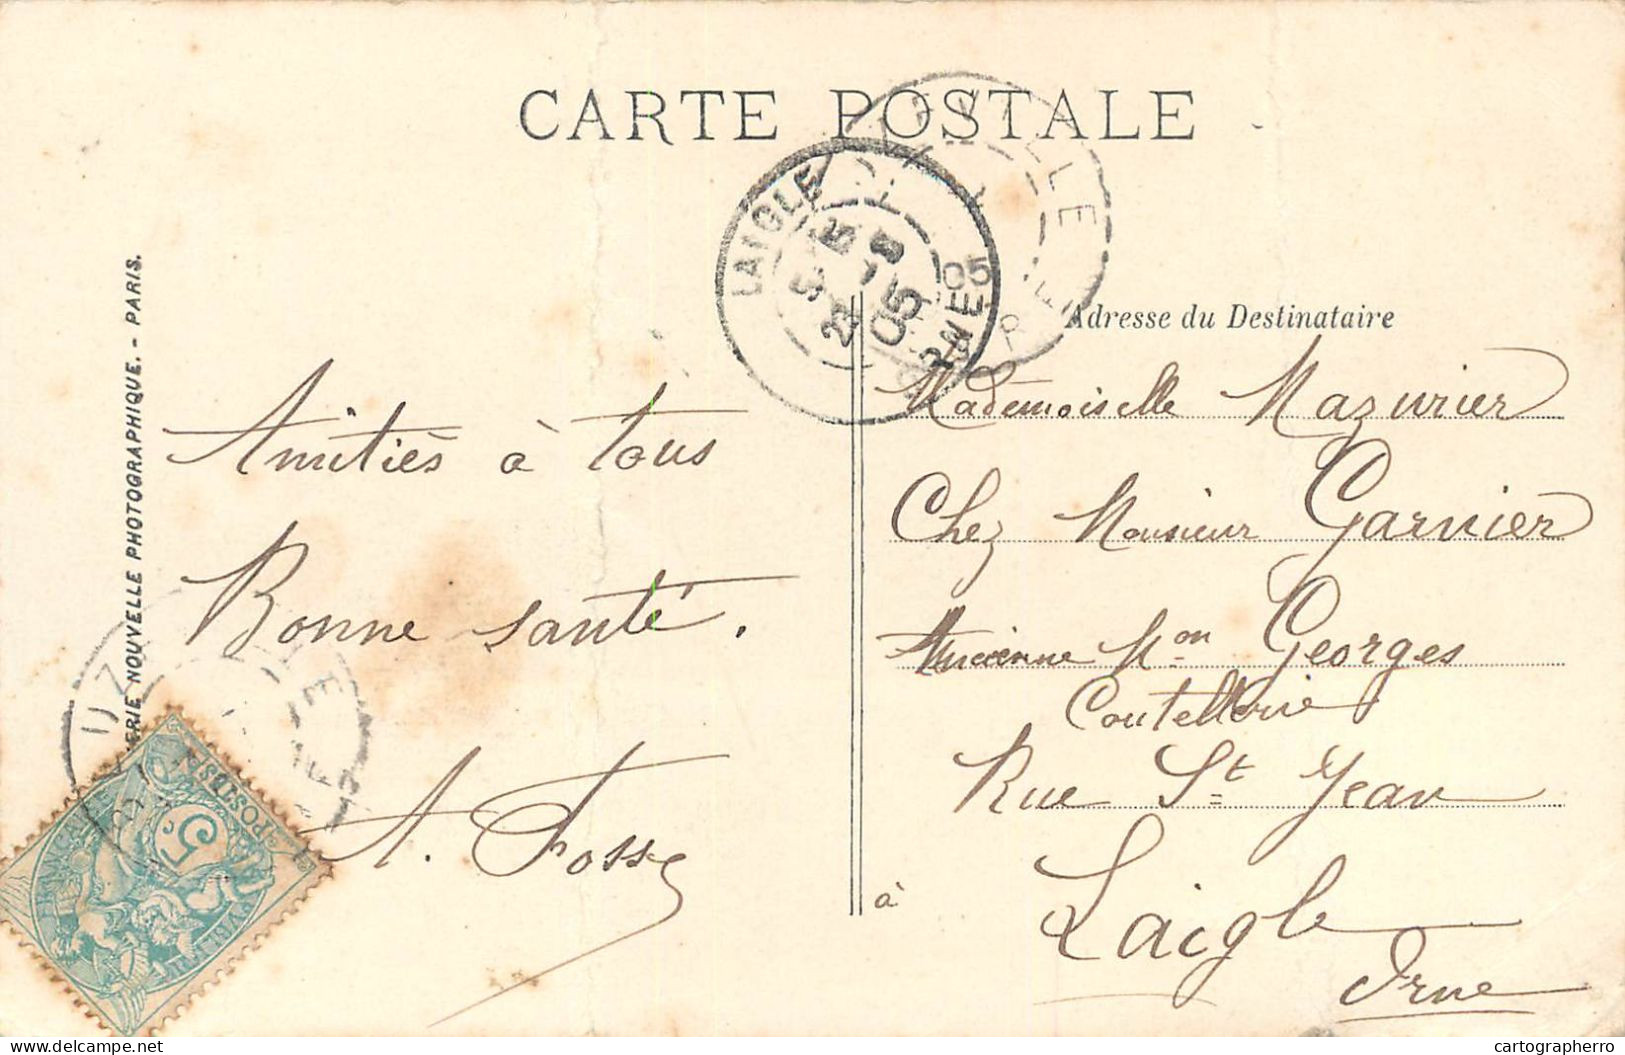 CARTE POSTALE
LAIGLE
ORNE
05
05
Adresse du Destinataire
NOUVELLE PHOTOGRAPHIQUE. - PARIS.
Amitiés à tous
Bonne santé.
A. Fosse
Mademoiselle Mazurier
Chez Monsieur Garnier
Ancienne Mon Georges
Coutellerie
Rue St Jean
à
Laigle
Orne
POSTES
5c
delcampe.net
cartographerro